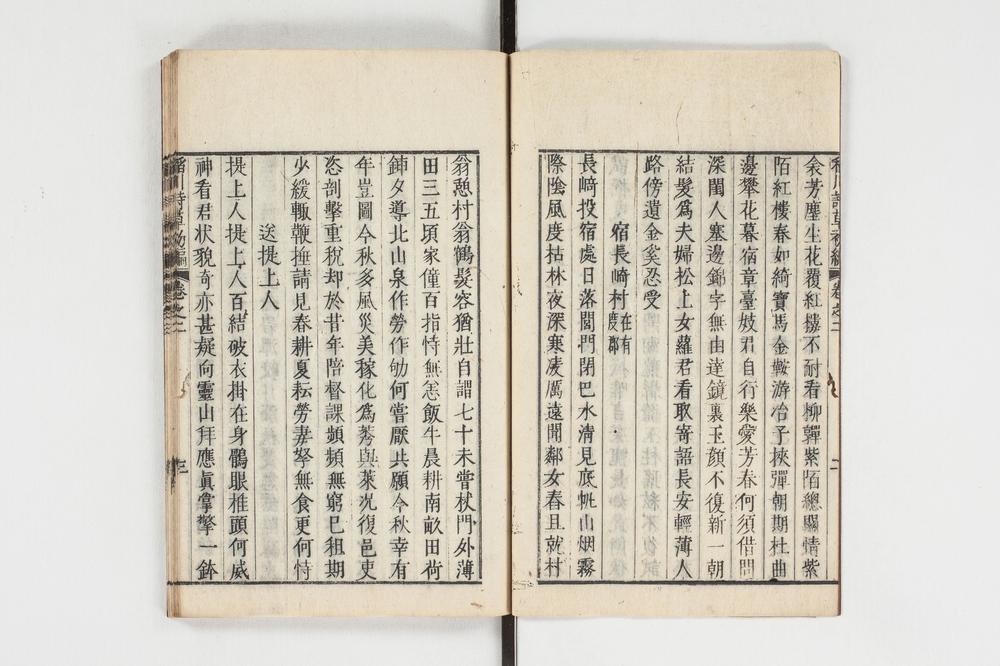 衾芳塵坐花覆紅樓不耐看柳嚲紫陌總關情紫
陌紅樓春如綺寶馬金鞍游冶子挾彈朝期杜曲
邊攀花暮宿章臺妓君自行樂愛芳春何須借問
深閨人塞邊錦字無由達鏡裏玉顏不復新一朝
結髮爲夫婦松上女蘿君看取寄語長安輕薄人
路傍遺金奚忍受
宿長崎村在有度郡
長崎投宿處日落閭門閉巴水淸見底帆山烟霧
際陰風度枯林夜深寒凄厲遠聞鄰女舂且就村
翁憩村翁鶴髮容猶壯自謂七十未嘗杖門外薄
田三五頃家僮百指恃無恙飯牛晨耕南畝田荷
鍤夕導北山泉作勞作劬何嘗厭共願今秋幸有
年豈圖今秋多風災美稼化爲莠與萊况復邑吏
恣剖擊重稅却於昔年陪督課頻頻無窮已租期
少緩輙鞭捶請見春耕夏耘勞妻孥無食更何恃
送提上人
提上人提上人百結破衣掛在身鶻眼椎頭何威
神看君状貌奇亦甚疑向靈山拜應眞掌擎一鉢
卷之二
三